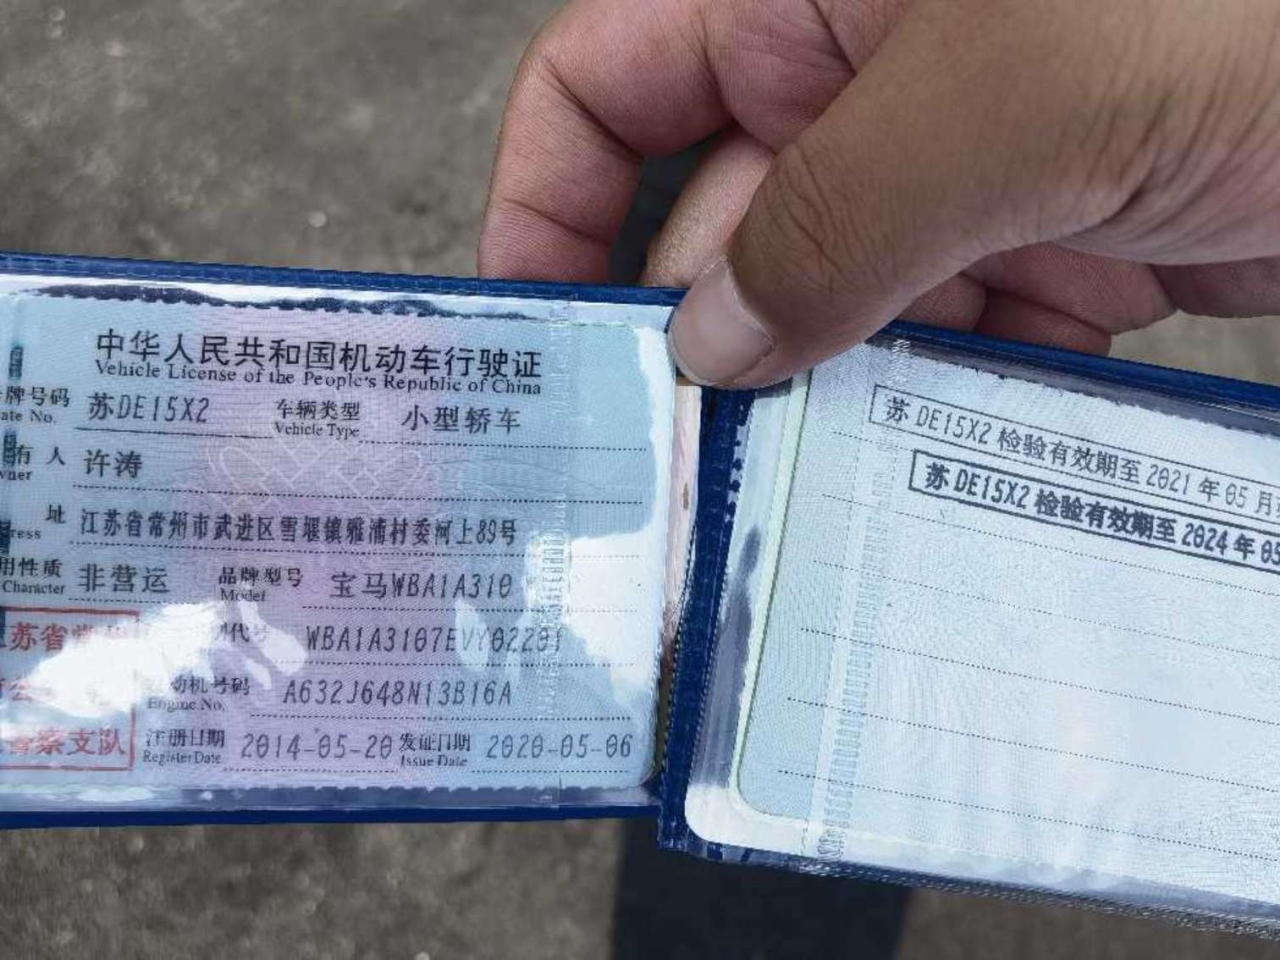 中华人民共和国机动车行驶证
Vehicle License of the People's Republic of China
牌号码 苏DE15X2 车辆类型 小型轿车
ate No. Vehicle Type
有人 许涛
wner
址 江苏省常州市武进区雪堰镇雅浦村委河上89号
ress
用性质 非营运 品牌型号 宝马WBA1A310
Character Model
苏省常 代号 WBA1A3107EVY02201
动机号码 A632J648N13B16A
Engine No.
警察支队 注册日期 2014-05-20 发证日期 2020-05-06
Register Date Issue Date
苏DE15X2检验有效期至2021年05月
苏DE15X2检验有效期至2024年